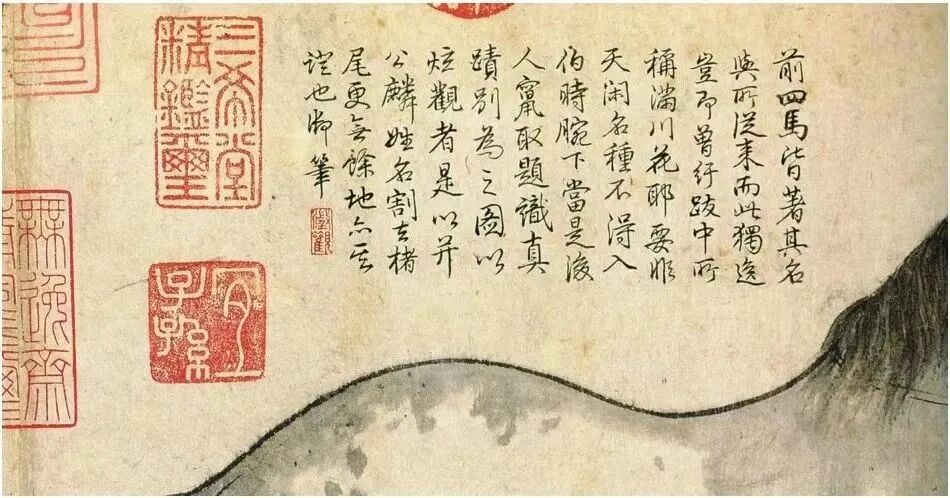 前四馬皆著其名
與所從来而此獨逸
豈即曾紆跋中所
稱滿川花耶要非
天闲名種不得入
伯時腕下當是後
人竄取題識真
蹟別為之圖以
炫觀者是以并
公麟姓名割去楮
尾更無餘地亦其
證也御筆
三希堂
精鑑璽
宜
子孫
無逸齋